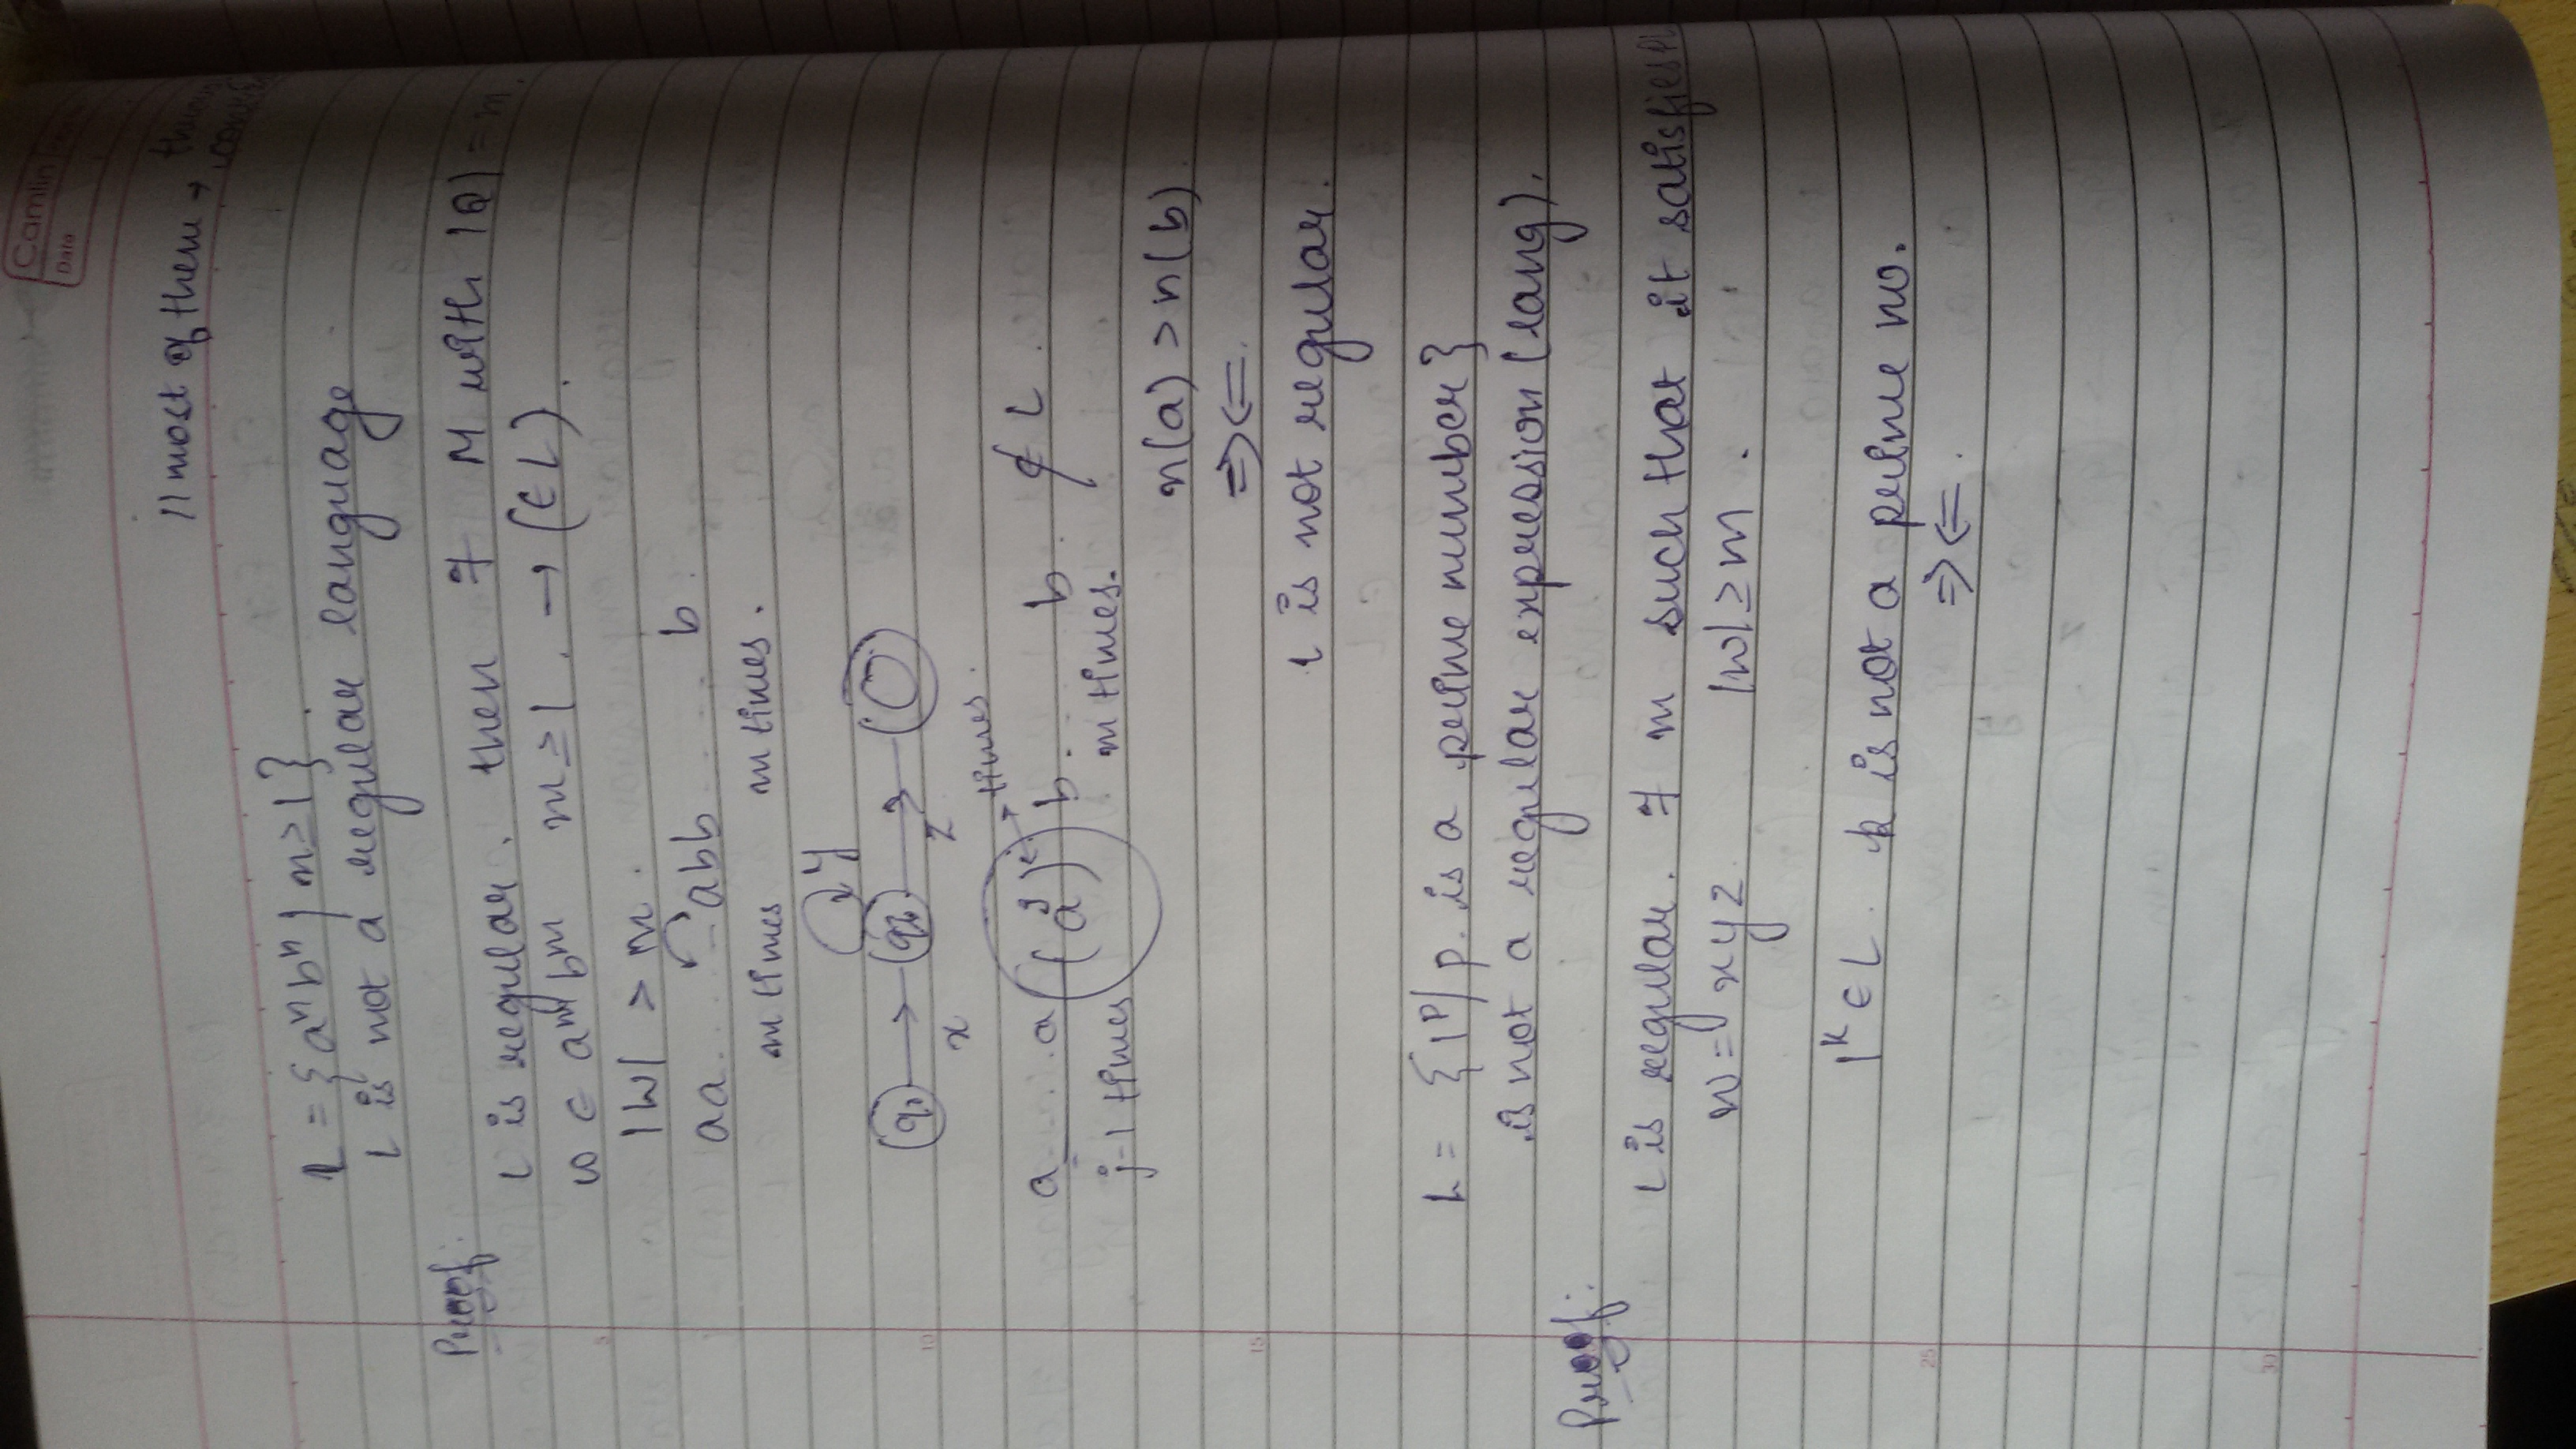 Camlin
Date
// most of them →
L = {aⁿbⁿ / n ≥ 1}.
L is not a regular language
Proof:
L is regular. then ∃ M with |Q| = m.
w ∈ aᵐbᵐ m ≥ 1. → (∈ L).
|W| > m.
aa........abb b.
m times m times.
y
x z
a a (a ) → times. b. b. ∉ L.
j-1 times m times.
n(a) > n(b)
⇒⇐.
L is not regular.
L = {1ᵖ/ p. is a prime number}
is not a regular expression (lang).
Proof:
L is regular. ∃ m such that it satisfies PL
w = xyz. |w| ≥ m.
1ᵏ ∈ L. k is not a prime no.
⇒⇐.
5
10
15
25
30